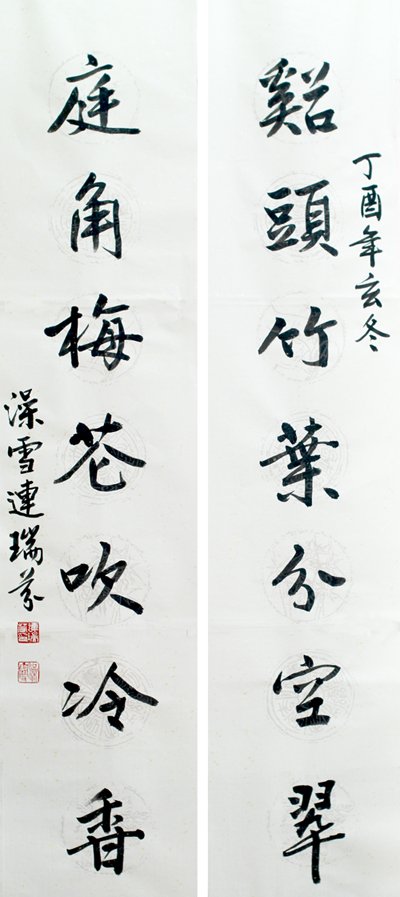 丁酉年玄冬
谿頭竹葉分空翠
庭角梅花吹冷香
澡雪連瑞芬